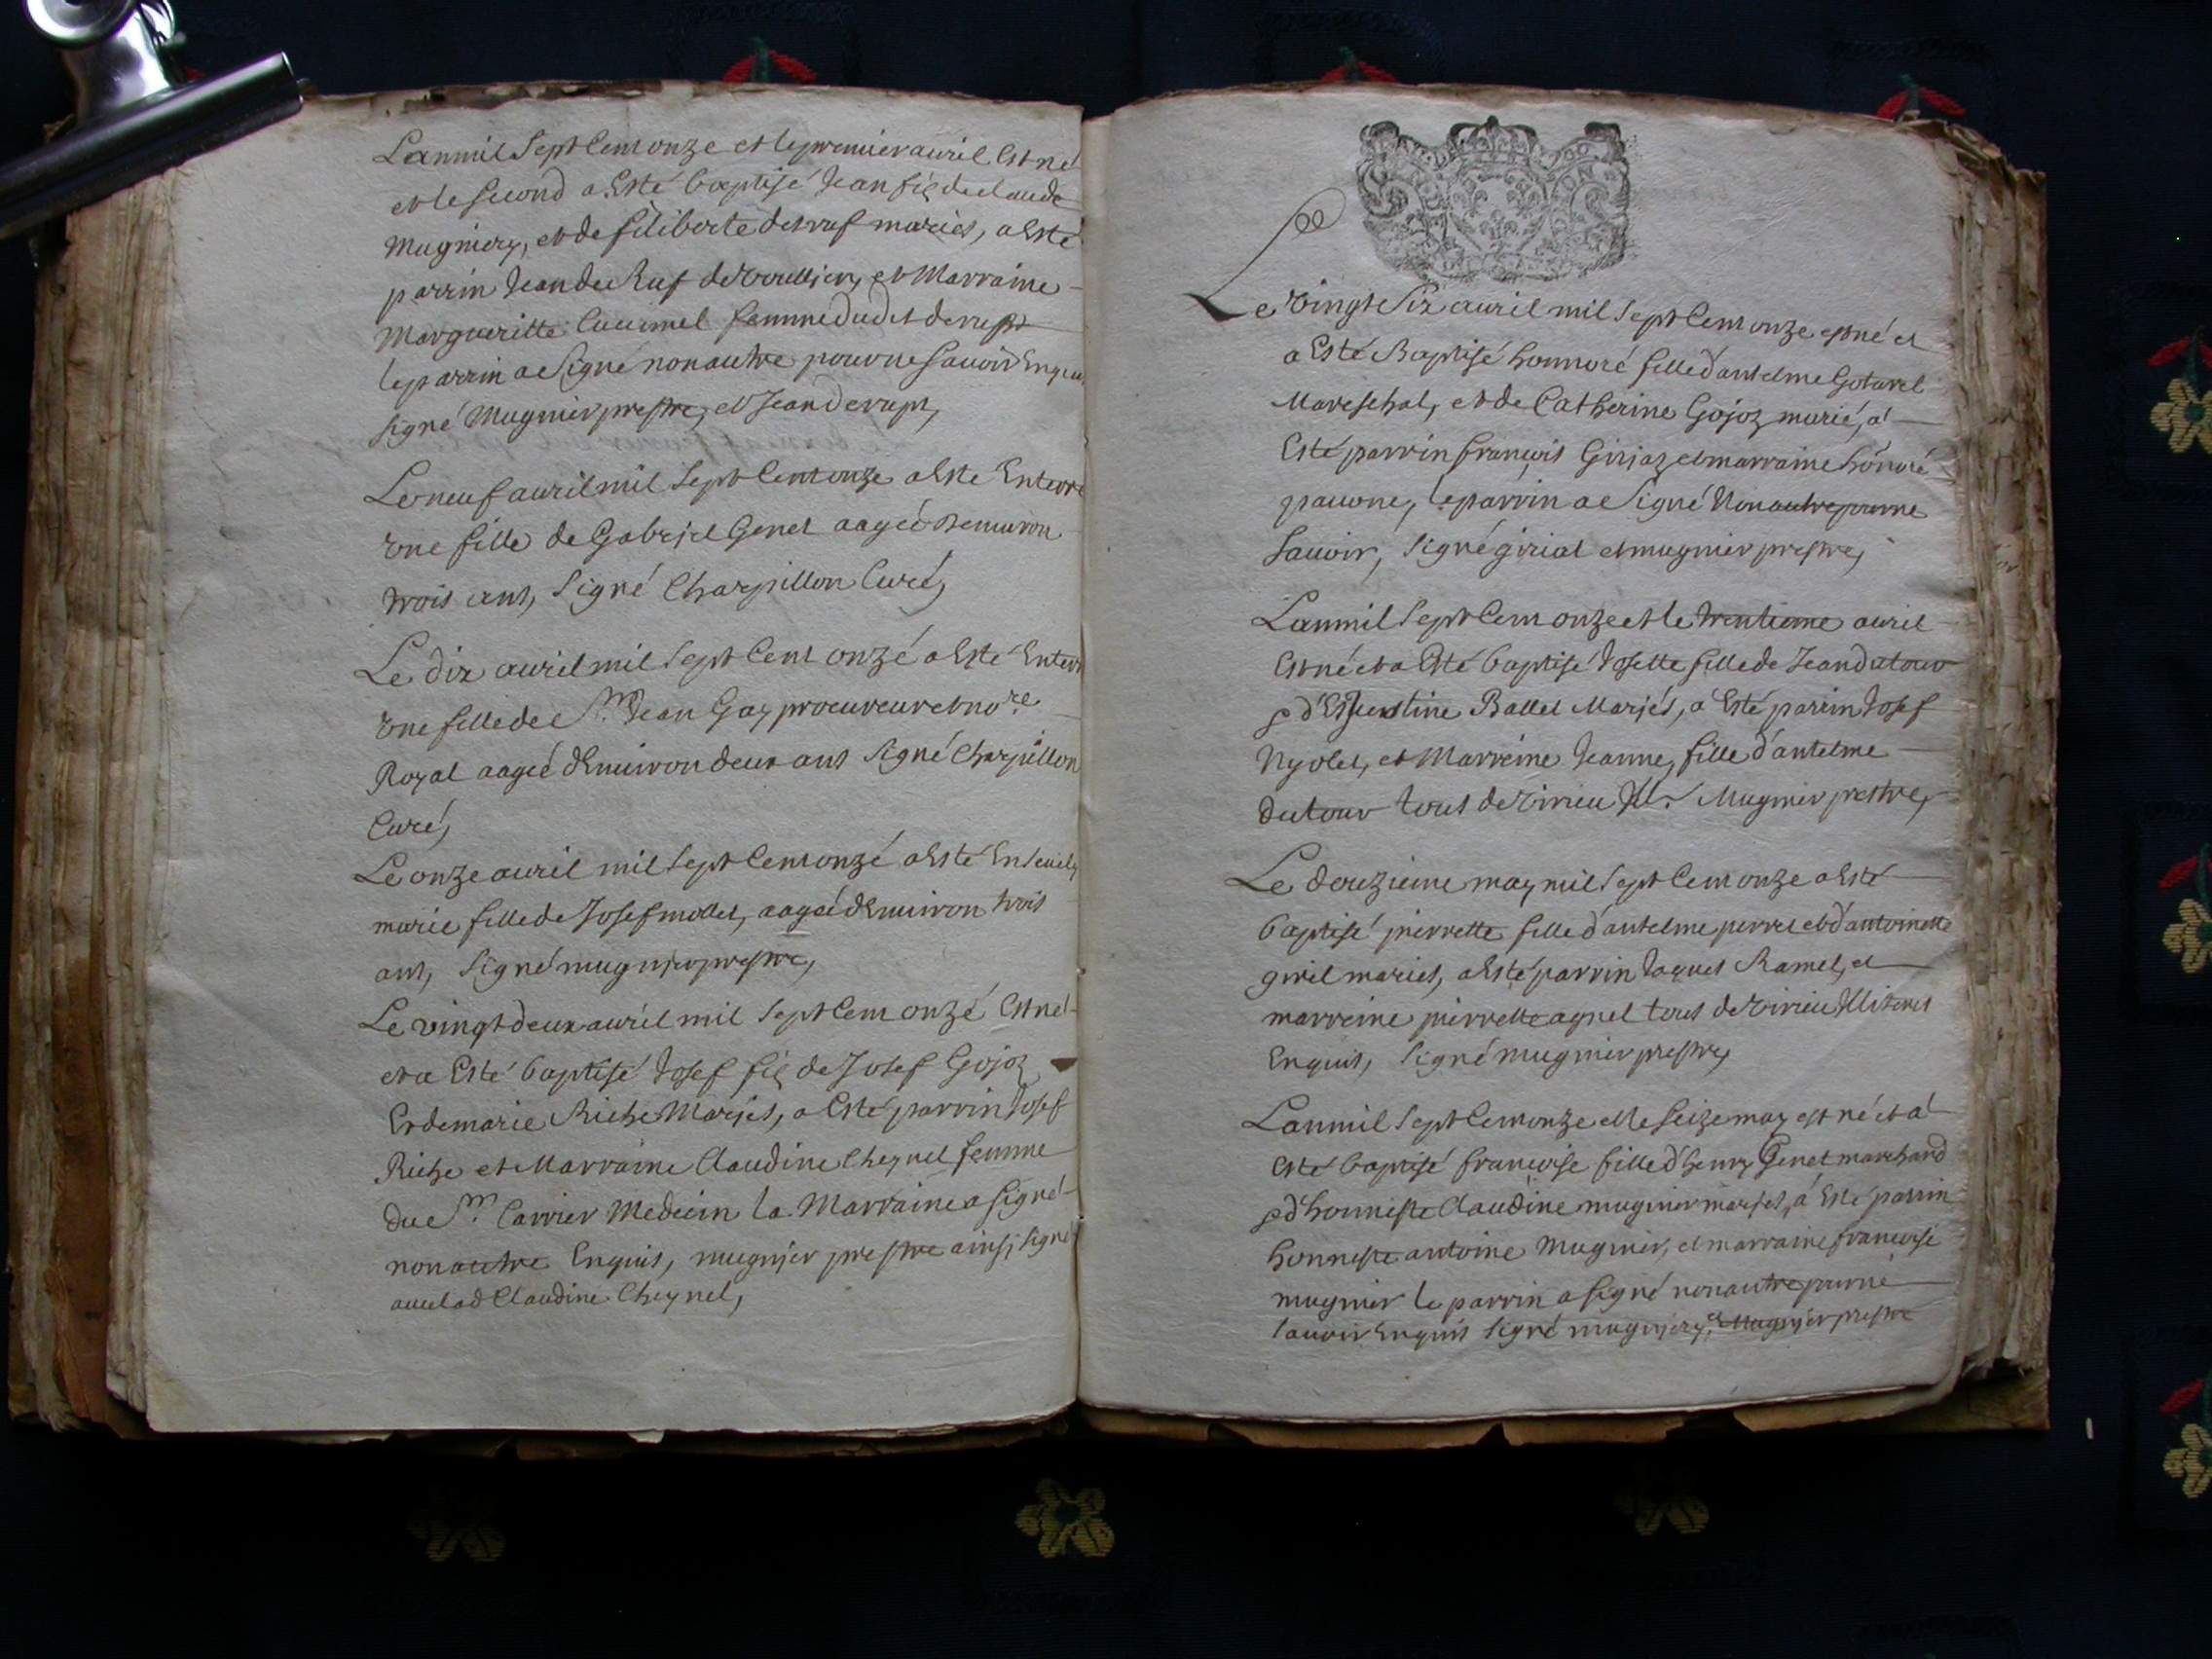 Lanmil Sept Cent onze et le premier auril Est né
et le second a Esté baptisé Jean fil de claude
Mugniery, et de filiberte deruf mariés, a Esté
parrin Jean du Ruf de et Marraine
Margueritte femme dudt
le parrin a Signé non autre pour ne Sauoir Enquis
signé Mugnier prestre, et Jean
Le neuf auril mil Sept Cent onze a Este Enterré
une fille de Gabrjel Genet aagéé denuiron
trois ans, Signé Charpillon Curé,
Le dix auril mil Sept Cent onzé a Esté Enterré
une fille de Sr. Jean Gay procureur et nore
Royal aagéé d'Enuiron deux ans Signé Charpillon
Curé,
Le onze auril mil Sept Cent onzé a Esté Enseuely
marie fille de Josef mollet, aagéé d'Enuiron trois
ans, Signé mugnjer prestre,
Le vingt deux auril mil Sept Cent onzé Est né
et a Esté baptisé Josef fil de Josef Gojoz
Et de marie Riche Marjés, a Esté parrin Josef
Riche et Marraine Claudine Cheynel femme
du Sr. Carrier Medecin la Marraine a signé
non autre Enquis, mugnjer prestre ainsj signé
auec lad Claudine Cheynel,
Le vingt Six auril mil Sept Cent onze est né et
a Esté Baptisé honnoré fille d'antelme Gotarel
Mareschal, et de Catherine Gojoz marié, a
Esté parrin françois Girjaz et marraine honoré
pauone, le parrin a Signé Non autre pour ne
Sauoir, Signé giriat et mugnier prestre,
Lanmil Sept Cent onze et le trentieme auril
Est né et a Esté baptisé Josette fille de Jean dutour
Ballet Marjés, a Esté parrin Josef
Nyolet, et Marreine Jeanne, fille d'antelme
dutour tous de Virieu Mugnier prestre,
Le douzieme may mil Sept Cent onze a Esté
baptisé pierrette fille d'antelme perret et d'antoinette
giril mariés, a Esté parrin Jaques Ramel, et
marreine pierrette agnel tous de Virieu Illiterés
Enquis, Signé mugnier prestre,
Lanmil Sept Cent onze et le Seize may est né et a
Esté baptisé francoise fille d'henry Genet marchand
et d'honneste Claudine mugnier marjés, a Esté parrin
honneste antoine Mugnier, et marraine francoise
mugnier le parrin a signé non autre pour ne
sauoir Enquis signé mugnjery, et Mugnjer prestre